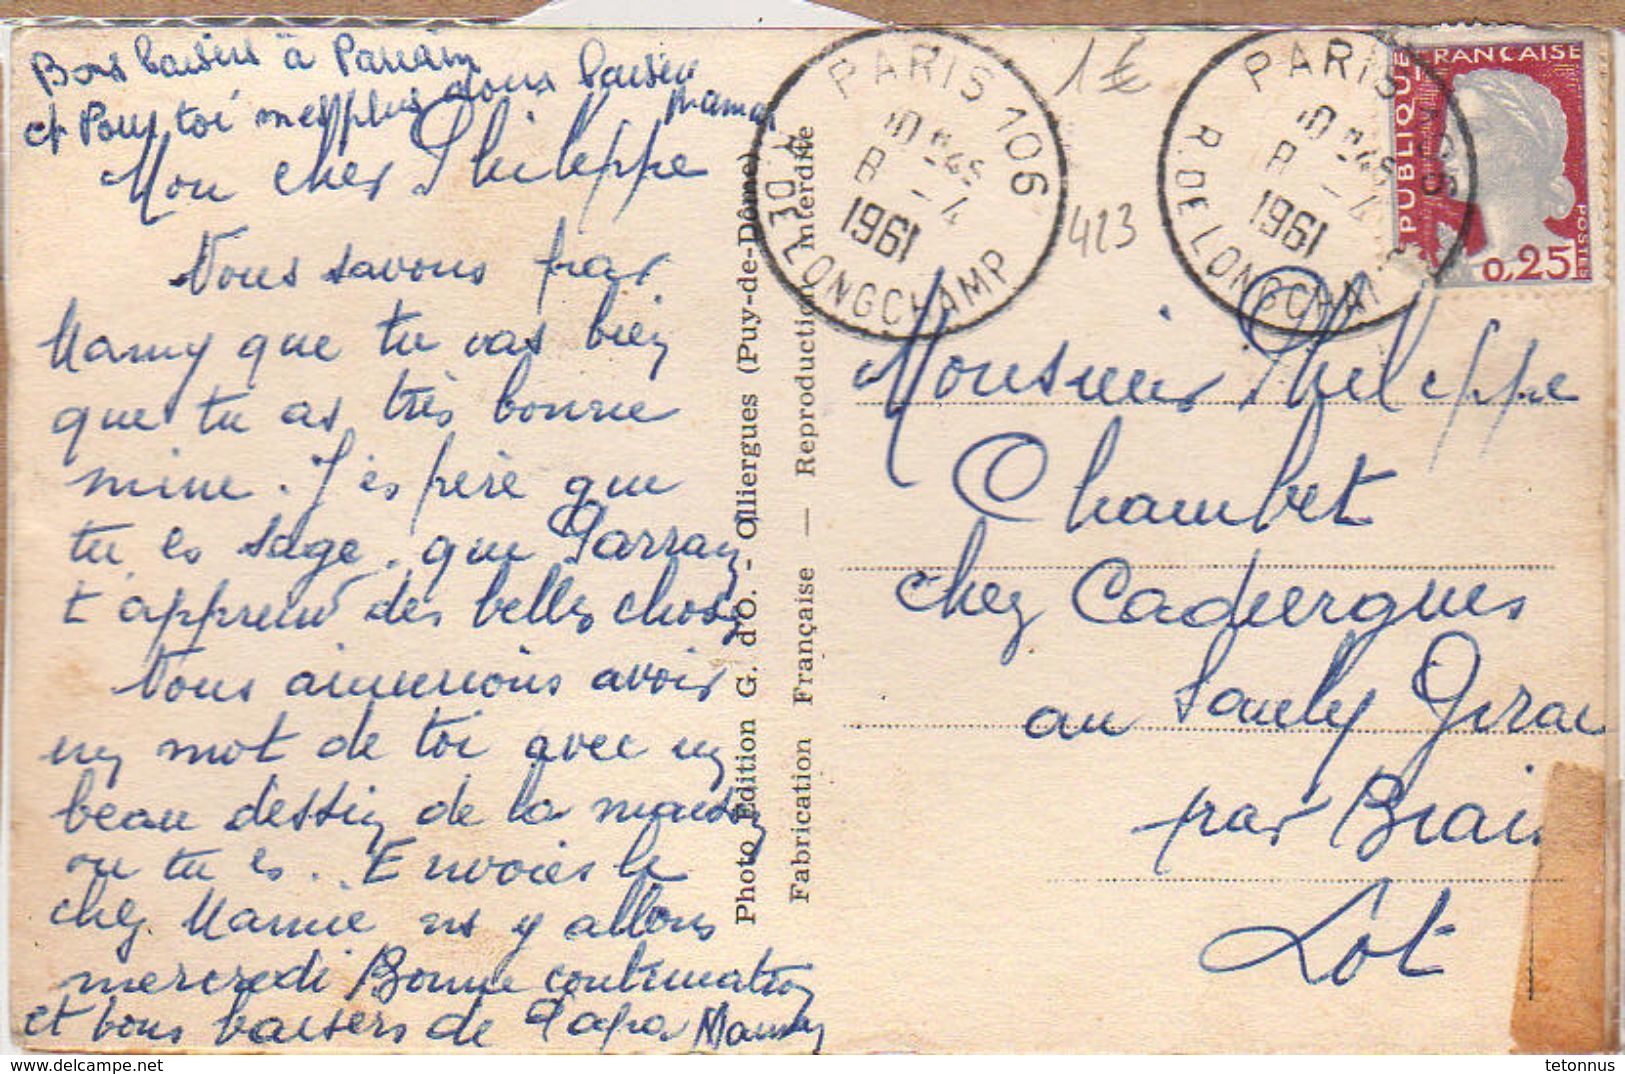 Bons baisers à Parrain
et Pour toi mes plus doux baisers
Maman
Mon cher Philippe
Nous savons par
Mamy que tu vas bien
que tu as très bonne
mine. J'espère que
tu es sage. que Parrain
t'apprend des belles choses
Nous aimerions avoir
un mot de toi avec un
beau dessin de la maison
ou tu es.. Envoies le
chez Mamie ns y allons
mercredi Bonne continuation
et bons baisers de Papa Maman
Photo Edition G. d'O. - Olliergues (Puy-de-Dôme)
Fabrication Française — Reproduction interdite
PARIS 106
10 H45
8 - 4
1961
R. DE LONGCHAMP
1 €
423
PARIS 106
10 H45
8 - 4
1961
R. DE LONGCHAMP
REPUBLIQUE FRANÇAISE
POSTES
0,25
Monsieur Philippe
Chambet
chez Caduergues
au Girac
par
Lot
delcampe.net
tetonnus